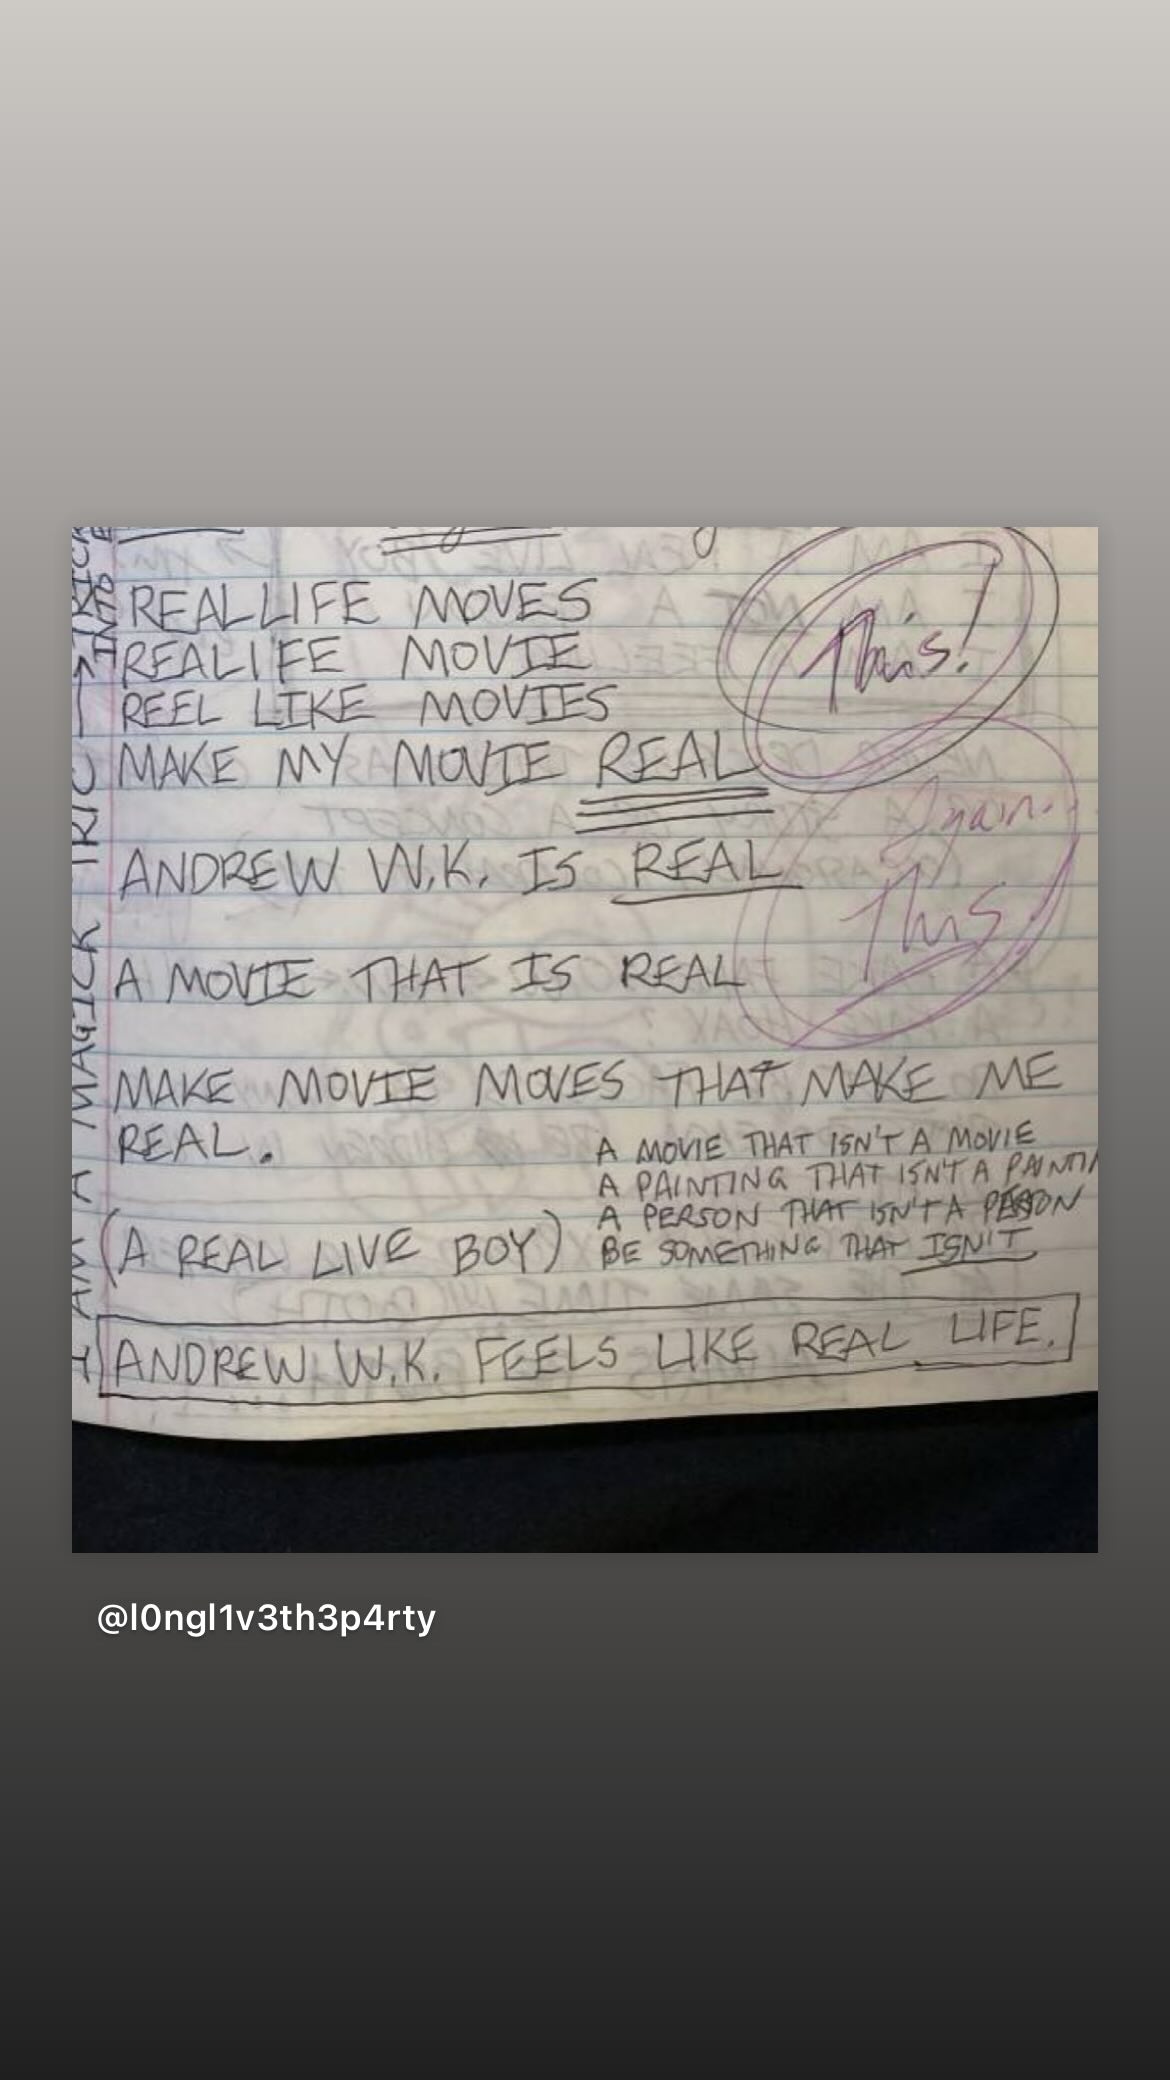 REALLIFE MOVES
This!
REALIFE MOVIE
REEL LIKE MOVIES
MAKE MY MOVIE REAL
Again.
This
ANDREW W.K. IS REAL
A MOVIE THAT IS REAL
MAKE MOVIE MOVES THAT MAKE ME
REAL.
A MOVIE THAT ISN'T A MOVIE
A PAINTING THAT ISN'T A PAINTI
A PERSON THAT ISN'T A PERSON
BE SOMETHING THAT ISN'T
(A REAL LIVE BOY)
ANDREW W.K. FEELS LIKE REAL LIFE.
I AM A MAGICK TRIC → TRICK
INTO
@l0ngl1v3th3p4rty